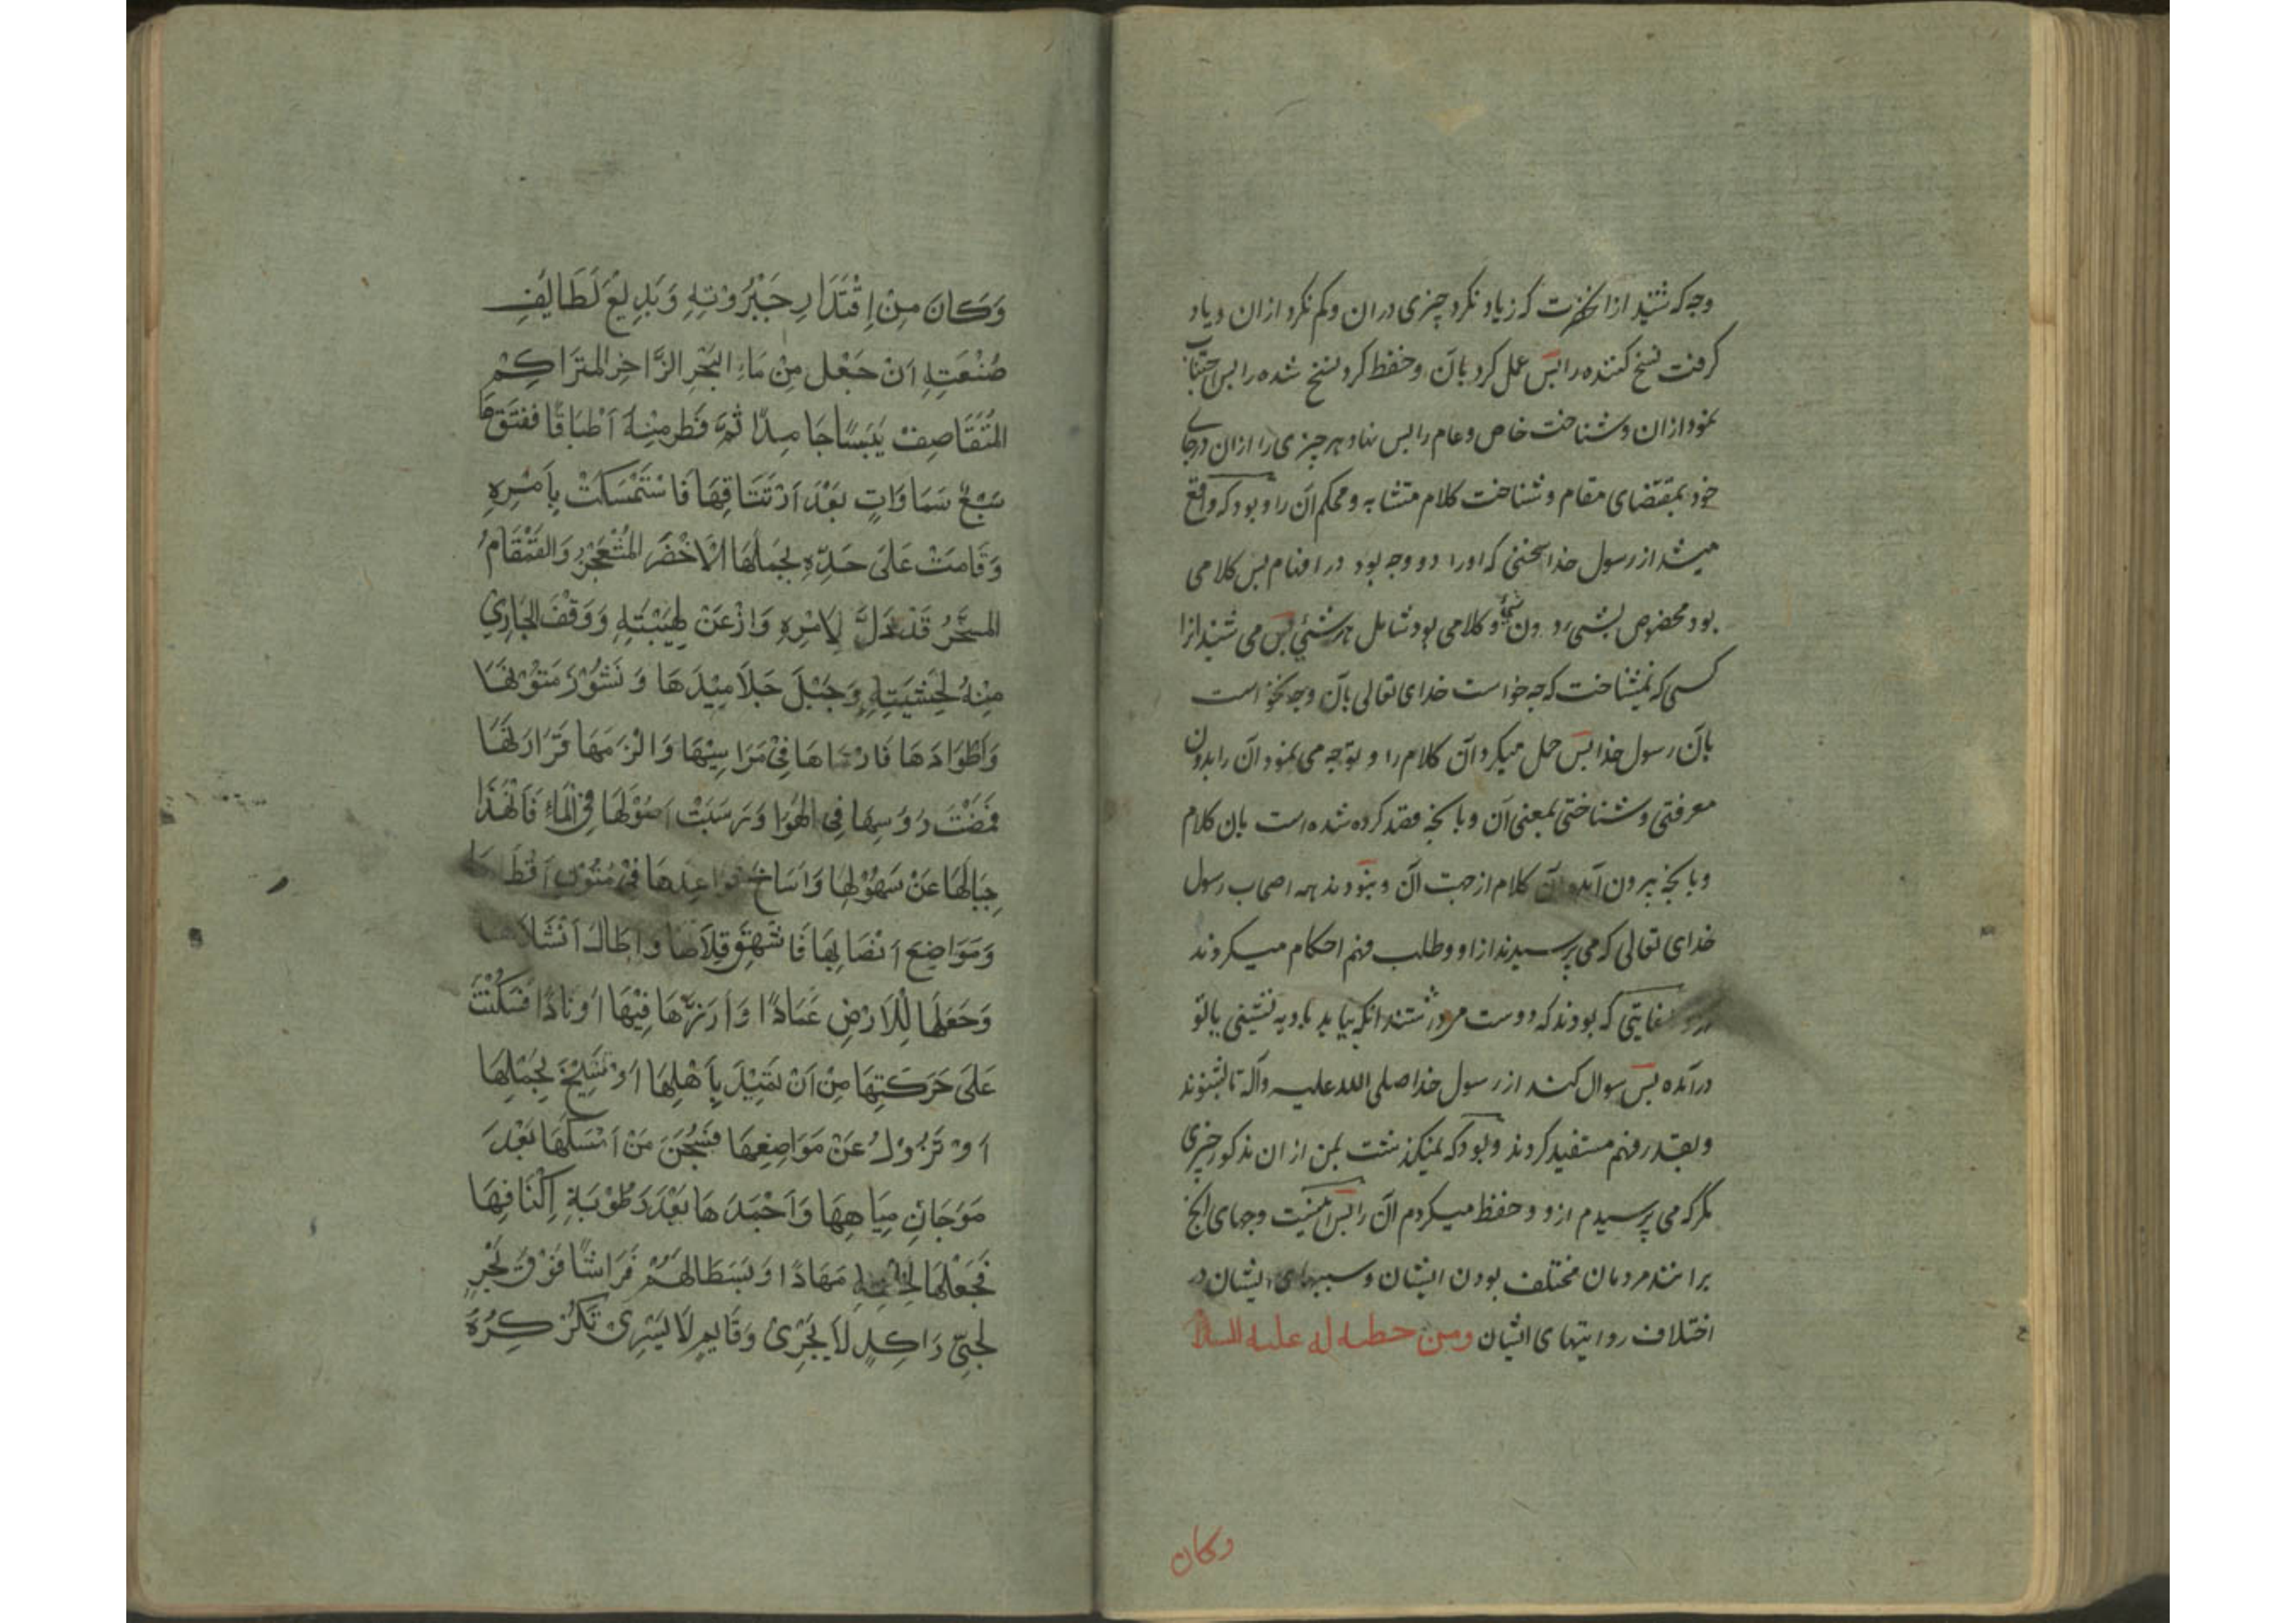 وجه که شنید از آنحضرت که زیاد نکرد چیزی در ان و کم نکرد از ان و یاد
کرفت نسخ کننده را پس عمل کرد بآن و حفظ کرد نسخ شده را پس اجتناب
نمود از ان و شناخت خاص و عام را پس نهاد هر چیزی را از ان در جای
خود بمقتضای مقام و شناخت کلام متشابه و محکم آن را و بود که واقع
میشد از رسول خدا سخنی که اورا دو وجه بود در افهام پس کلامی
بود مخصوص بشیء دون شیء و کلامی بود شامل هر شیئی پس می شنید انرا
کسی که نمیشناخت که چه خواست خدای تعالی بآن و چه خواست
بآن رسول خدا پس حمل میکرد آن کلام را و توجه می نمود آن را بدون
معرفتی و شناختی بمعنی آن و بانچه قصد کرده شده است بان کلام
و بانچه بیرون آمده آن کلام از جهت آن و نبودند همه اصحاب رسول
خدای تعالی که می پرسیدند از او و طلب فهم احکام میکردند
که بودند که دوست میداشتند انکه بیاید بادیه نشینی یا نو
درآمده پس سوال کند از رسول خدا صلی الله علیه وآله تا بشنوند
و بقدر فهم مستفید کردند و بود که نمیکذشت بمن از ان مذکور چیزی
مکر که می پرسیدم ازو و حفظ میکردم آن را پس اینست وجهای انچ
برانند مردمان مختلف بودن ایشان و سببهای ایشان در
اختلاف روایتهای ایشان ومن خطبه له علیه السلا
وکان
وَكَانَ مِنْ اِقْتِدَارِ جَبَرُوْتِهِ وَبَدِيْعِ لَطَائِفِ
صُنْعَتِهِ اَنْ جَعَلَ مِنْ مَاءِ الْبَحْرِ الزَّاخِرِ المُتَرَاكِمِ
المُتَقَاصِفِ يَبَسًا جَامِدًا ثُمَّ فَطَر مِنْهُ اَطْبَاقًا فَفَتَقَهَا
سَبْعَ سَمَاوَاتٍ بَعْدَ اَرْتَتَاقِهَا فَاسْتَمْسَكَتْ بِاَمْرِهِ
وَقَامَتْ عَلَى حَدِّهِ يَحْمِلُهَا الْاَخْضَرُ المُثْعَنْجِرُ وَالقَمْقَامُ
المسَخَّرُ قَدْ ذَلَّ لِاَمْرِهِ وَاَذْعَنَ لِهَيْبَتِهِ وَوَقَفَ الجَارِيْ
مِنْهُ لِخَشْيَتِهِ وَجَبَلَ جَلَامِيْدَهَا وَنُشُوْزَ مُتُوْنِهَا
وَاَطْوَادَهَا فَارْسَاهَا فِيْ مَرَاسِيْهَا وَاَلْزَمَهَا قَرَارَتَهَا
فَمَضَتْ رُؤُسِهَا فِي الهَوَا وَرَسَبَتْ اُصُوْلُهَا فِى الْمَاءِ فَاَنْهَدَ
جِبَالَهَا عَنْ سُهُوْلِهَا وَاَسَاخَ قواعِدهَا فِيْ مُتُوْنِ اَقْطَارهَا
وَمَوَاضِعِ اَنْصَابِهَا فَاَشْهَقَ قِلَالهَا وَاَطَالَ اَنْشَازها
وَجَعَلَهَا لِلْاَرْضِ عِمَادًا وَاَرَّزَهَا فِيْهَا اَوْتَادًا فَسَكَنْتَ
عَلَى حَرَكَتِهَا مِنْ اَنْ تَمِيْدَ بِاَهْلِهَا اَوْ تَسِيْخَ بِحَمْلِهَا
اَوْ تَزُوْلَ عَنْ مَوَاضِعِهَا فَسُبْحَنَ مَنْ اَمْسَكَهَا بَعْدَ
مَوَجَانِ مِيَاهِهَا وَاَجْمَدَهَا بَعْدَ رَطُوْبَةِ اَكْنَافِهَا
فَجَعَلَهَا لِخَلْقِهِ مَهَادًا وَبَسَطَهَا لَهُمْ فَرَاشًا فَوْقَ بَحْرٍ
لُجِّيّ رَاكِدٍ لَا يَجْرِيْ وَقَايِمٍ لَا يَسْرِيْ تُكَرْكِرُهُ